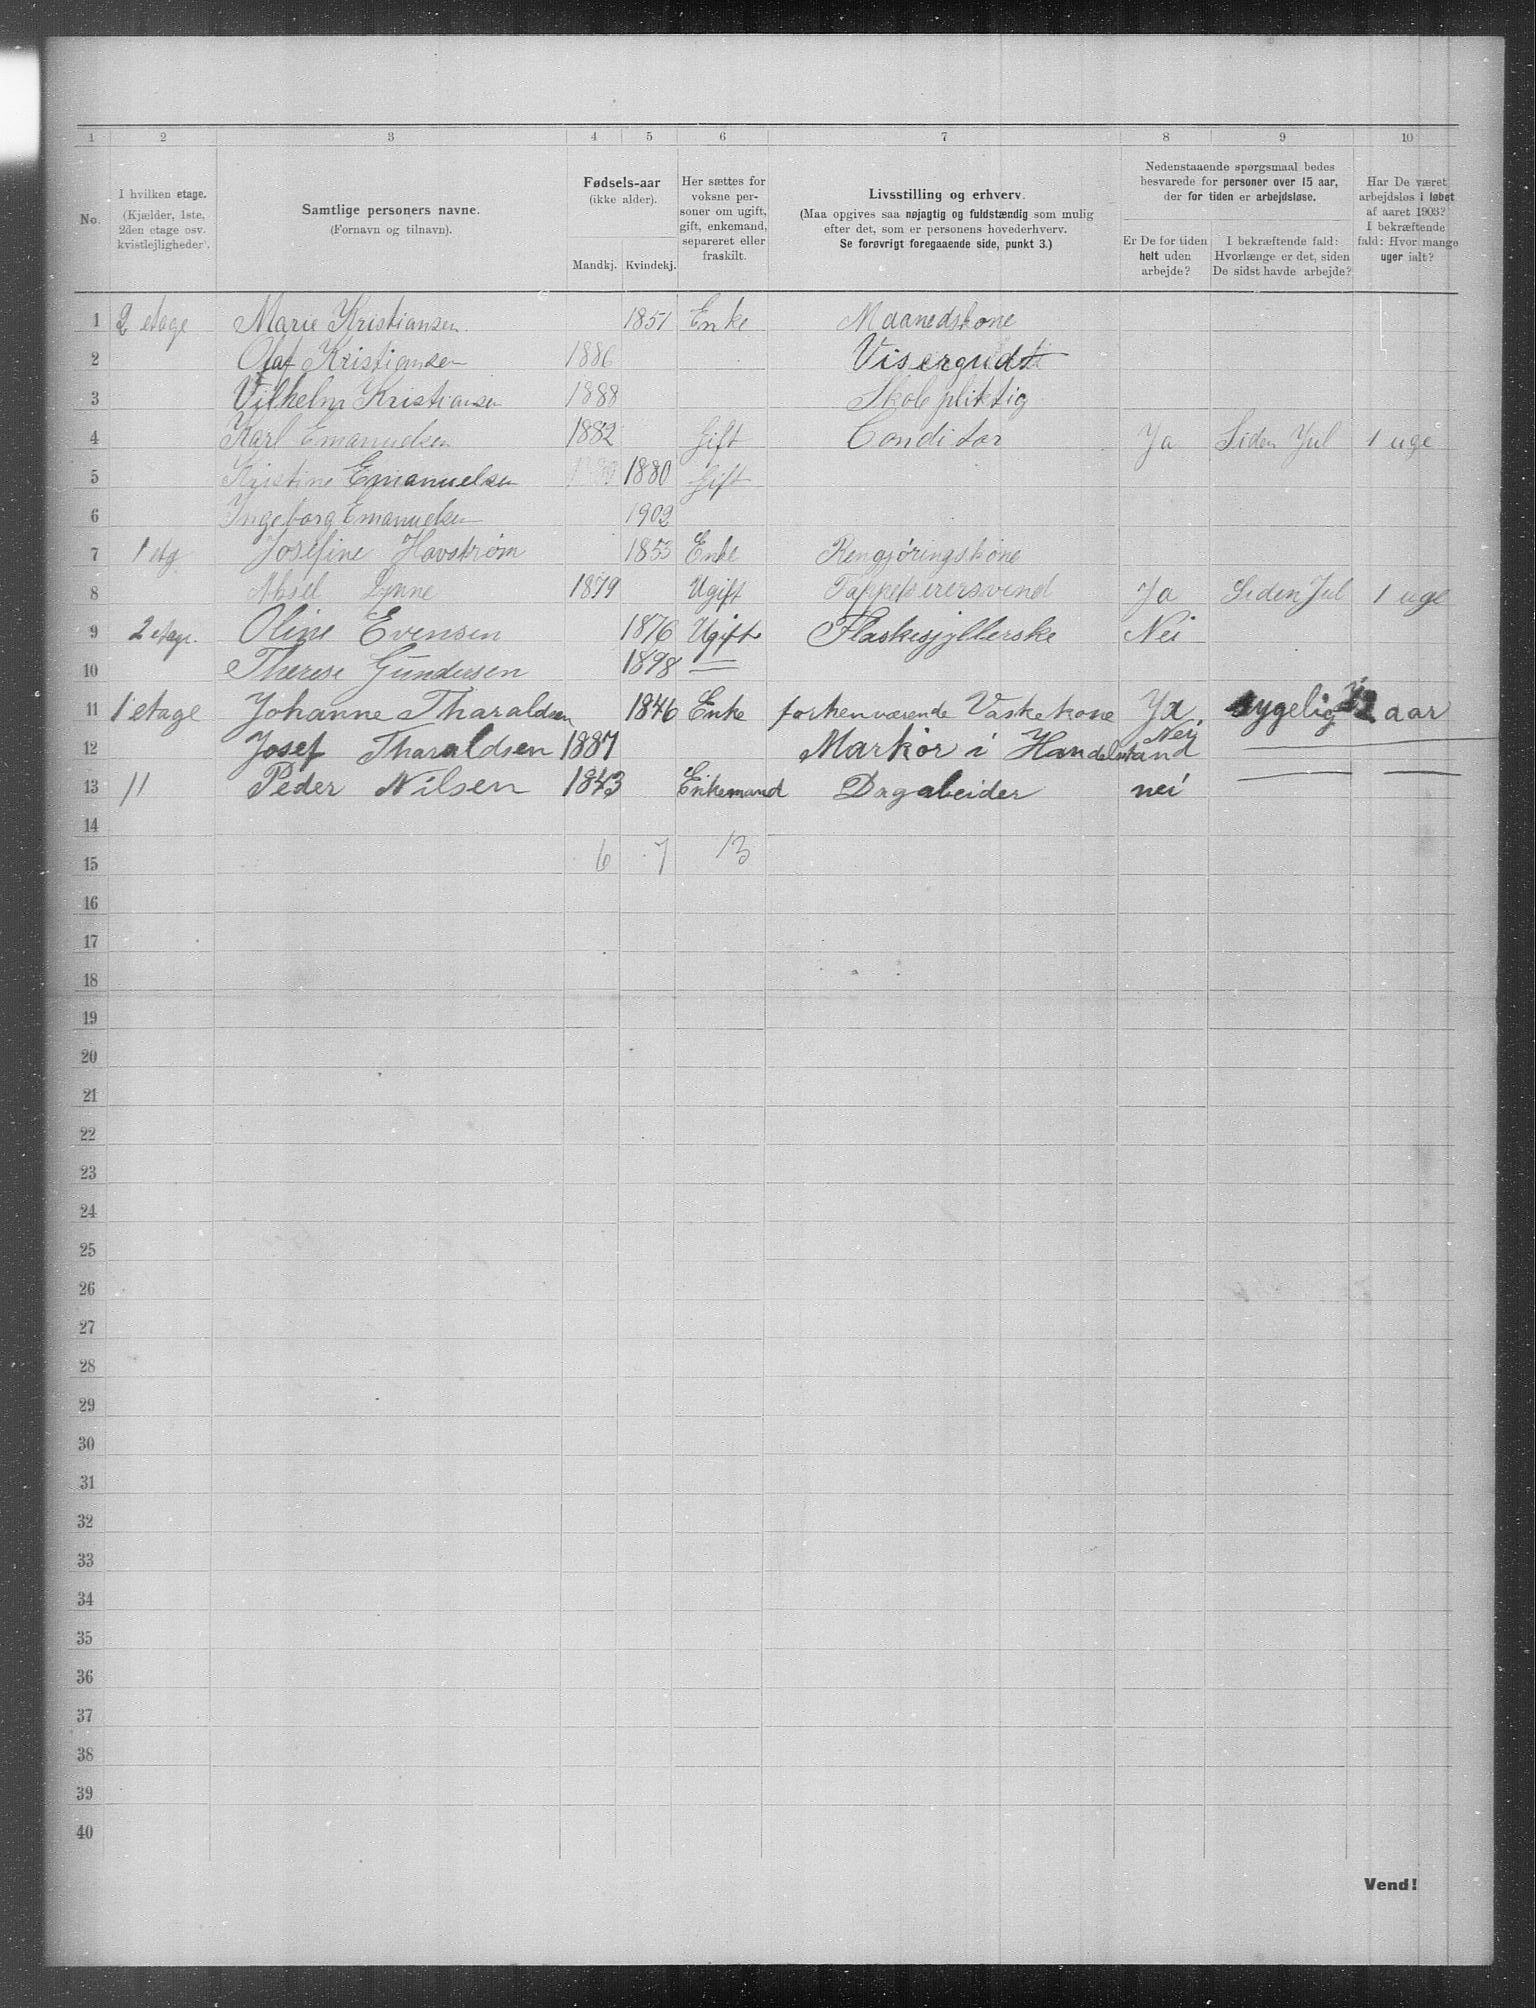 1 2 3 4 5 6 7 8 9 10
No.
I hvilken etage.
(Kjælder, 1ste,
2den etage osv.
kvistlejligheder).
Samtlige personers navne.
(Fornavn og tilnavn).
Fødsels-aar
(ikke alder).
Mandkj. Kvindekj.
Her sættes for
voksne per-
soner om ugift,
gift, enkemand,
separeret eller
fraskilt.
Livsstilling og erhverv.
(Maa opgives saa nøjagtig og fuldstændig som mulig
efter det, som er personens hovederhverv.
Se forøvrigt foregaaende side, punkt 3.)
Nedenstaaende spørgsmaal bedes
besvarede for personer over 15 aar,
der for tiden er arbejdsløse.
Er De for tiden
helt uden
arbejde?
I bekræftende fald:
Hvorlænge er det, siden
De sidst havde arbejde?
Har De været
arbejdsløs i løbet
af aaret 1903?
I bekræftende
fald: Hvor mange
uger ialt?
1 2 etage Marie Kristiansen 1851 Enke Maanedskone
2 Olaf Kristiansen 1886 Visergudt
3 Vilhelm Kristiansen 1888 Skolepliktig
4 Karl Emanuelsen 1882 Gift Conditor Ja Siden Jul 1 uge
5 Kristine Emanuelsen 1880 Gift
6 Ingeborg Emanuelsen 1902
7 1 etg Josefine Havstrøm 1853 Enke Rengjøringskone
8 Lynne 1879 Ugift Tappetserersvend Ja Siden Jul 1 uge
9 2 etage. Oline Evensen 1876 Ugift Flaskesjyllerske Nei
10 Therese Gundersen 1898 —
11 1 etage Johanne Tharaldsen 1846 Enke forhenværende Vaskekone Ja, sygelig 2 aar
12 Josef Tharaldsen 1887 Markør i Handelstand Nei
13 11 Peder Nilsen 1843 Enkemand Dagabeider nei
14
15 6 7 13
16
17
18
19
20
21
22
23
24
25
26
27
28
29
30
31
32
33
34
35
36
37
38
39
40
Vend!